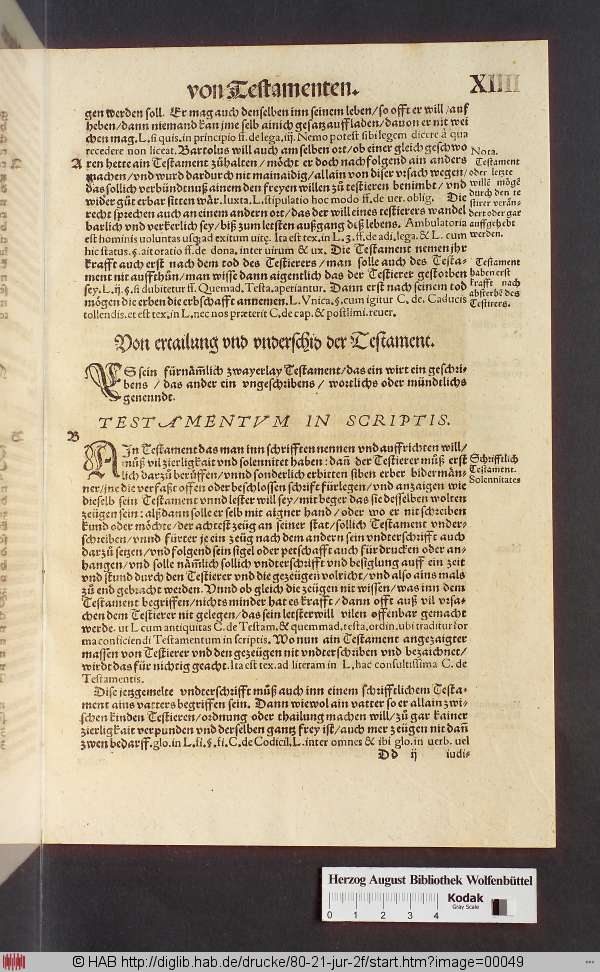 von Testamenten. XIIII
gen werden soll. Er mag auch denselben inn seinem leben/ so offt er will/ auf
heben/ dann niemand kan jme selb ainich gesatz auffladen/ davon er nit wei
chen mag. L. si quis. in principio ff. de lega. iij. Nemo potest sibi legem dicere à qua
recedere non liceat. Bartolus will auch am selben ort/ ob einer gleich geschwo
A ren hette ain Testament zůhalten/ möcht er doch nachfolgend ain anders
machen/ vnd wurd dardurch nit mainaidig/ allain von diser vrsach wegen/
das sollich verbündtnuß ainem den freyen willen zů testieren benimbt/ vnd
wider gůt erbar sitten wår. Iuxta. L. stipulatio hoc modo ff. de uer. oblig. Die
recht sprechen auch an einem andern ort/ das der will eines testierers wandel
barlich vnd verkerlich sey/ biß zum letsten außgang deß lebens. Ambulatoria
est hominis uoluntas usq; ad exitum uitę. Ita est tex. in L. 3. ff. de adi. lega. & L. cum
hic status. §. ait oratio ff. de dona. inter uirum & ux. Die Testament nemen jhr
krafft auch erst nach dem tod des Testierers/ man solle auch des Testa-
ment nit auffthůn/ man wisse dann aigentlich das der Testierer gestorben
sey. L. ij. §. si dubitetur ff. Quemad. Testa. aperiantur. Dann erst nach seinem tod
mögen die erben die erbschafft annemen. L. Vnica. §. cum igitur C. de. Caducis
tollendis. et est tex. in L. nec nos præterit C. de cap. & postlimi. reuer.
Nota.
Testament
oder letzte
wille mögē
durch den te
stirer verån-
dert oder gar
auffgehebt
werden.
Testament
haben erst
krafft nach
absterbē des
Testirers.
Von ertailung vnd vnderschid der Testament.
ES sein fürnåmlich zwayerlay Testament/ das ein wirt ein geschri-
bens / das ander ein vngeschribens / wortlichs oder mündtlichs
genenndt.
TESTAMENTVM IN SCRIPTIS.
B
AIn Testament das man inn schrifften nennen vnd auffrichten will/
můß vil zierligkait vnd solennitet haben: dañ der Testierer můß erst
lich darzů berůffen/ vnnd sonderlich erbitten siben erber bidermån-
ner/ jne die verfaßt offen oder beschlossen schrift fürlegen/ vnd anzaigen wie
dieselb sein Testament vnnd letster will sey/ mit beger das sie desselben wolten
zeügen sein: alßdann solle er selb mit aigner hand/ oder wo er nit schreiben
kund oder möchte/ der achtest zeüg an seiner stat/ sollich Testament vnder-
schreiben/ vnnd fürter je ein zeüg nach dem andern sein vndterschrifft auch
darzů setzen/ vnd folgend sein sigel oder petschafft auch fürdrucken oder an-
hangen/ vnd solle nåmlich sollich vndterschrifft vnd besiglung auff ein zeit
vnd stund durch den Testierer vnd die gezeügen volricht/ vnd also ains mals
zů end gebracht werden. Vnnd ob gleich die zeügen nit wissen/ was inn dem
Testament begriffen/ nichts minder hat es krafft/ dann offt auß vil vrsa-
chen dem Testierer nit gelegen/ das sein letster will vilen offenbar gemacht
werde. ut L cum antiquitas C. de Testam. & quemmad. testa. ordin. ubi traditur for
ma conficiendi Testamentum in scriptis. Wo nun ain Testament angezaigter
massen von Testierer vnd den gezeügen nit vndterschriben vnd bezaichnet/
wirdt das für nichtig geacht. Ita est tex. ad literam in L. hac consultissima C. de
Testamentis.
Schrifftlich
Testament.
Solennitates
Dise jetzgemelte vndterschrifft můß auch inn einem schrifftlichem Testa-
ment ains vatters begriffen sein. Dann wiewol ain vatter so er allain zwi-
schen kinden Testieren/ ordnung oder thailung machen will/ zů gar kainer
zierligkait verpunden vnd derselben gantz frey ist/ auch mer zeügen nit dañ
zwen bedarff. glo. in L. fi. §. fi. C. de Codicil. L. inter omnes & ibi glo. in uerb. uel
Dd ij iudi-
Herzog August Bibliothek Wolfenbüttel
0 1 2 3 4
Kodak
Gray Scale
© HAB http://diglib.hab.de/drucke/80-21-jur-2f/start.htm?image=00049